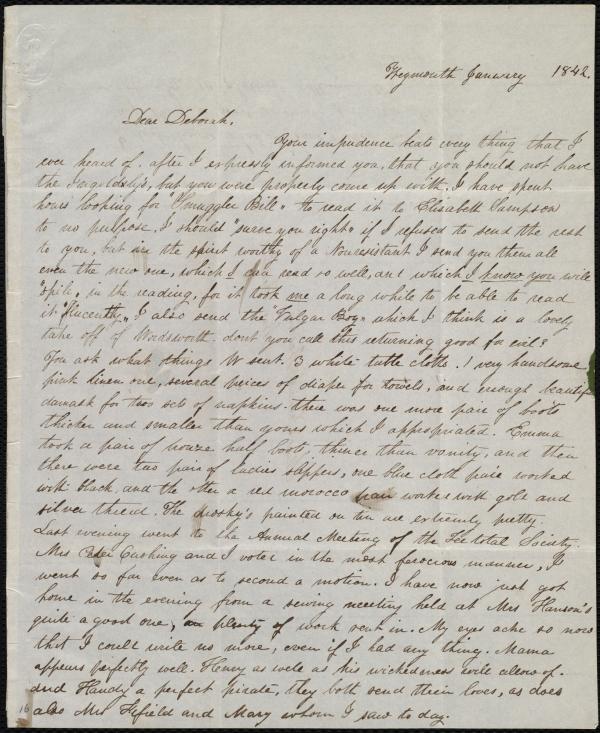 Weymouth January 1842.
Dear Deborah.
Your impudence beats every thing that I
ever heard of. after I expressly informed you, that you should not have
the Ingoldsby's, but you were properly come up with. I have spent
hours looking for "Smuggler Bill" to read it to Elisabeth Sampson
to no purpose, I should "sarve you right" if I refused to send the rest
to you, but in the spirit worthy of a Nonresistant I send you them all
even the new one, which I can read so well, and which I know you will
"spile" in the reading, for it took me a long while to be able to read
it "fluently". I also send the "Vulgar Boy" which I think is a lovely
take off of Wordsworth. dont you call this returning good for evil?
You ask what things W sent. 3 white table cloths. 1 very handsome
pink linen one, several peices of diaper for towels, and enough beautiful
damask for two sets of napkins. there was one more pair of boots
thicker and smaller than yours which I appropriated. Emma
took a pair of half boots, thinner than vanity, and then
there were two pair of ladies slippers, one blue cloth pair worked
with black, and the other a red morocco pair worked with gold and
silver thread. The drosky's painted on tin are extremly pretty.
Last evening went to the Annual Meeting of the Tee total Society.
Mrs Peter Cushing and I voted in the most ferocious manner, I
went so far even as to second a motion. I have now just got
home in the evening from a sewing meeting held at Mrs Hanson's
quite a good one, plenty of work sent in. My eyes ache so now
that I could write no more, even if I had any thing. Mama
appears perfectly well. Henry as well as his wickedness will allow of.
and Handy a perfect pirate, they both send their loves, as does
also Mrs Fifield and Mary whom I saw to day.
16